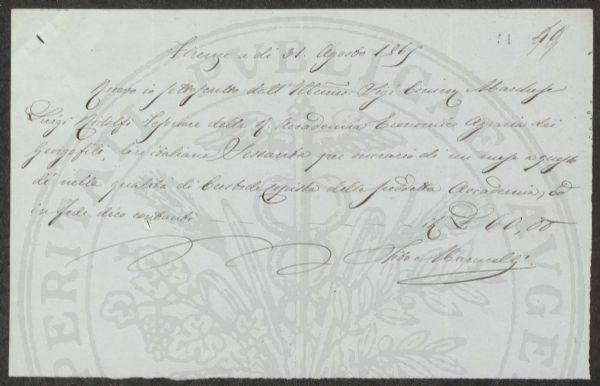 49
Firenze a di 31. Agosto 1865
Ricevo io sottoscritto dall'Illmo. Sig. Cavre. Marchese
Luigi Ridolfi Tesoriere della R. Accademia Economico Agraria dei
Georgofili, Lire italiane Sessanta per onorario di un mese a questo
di nella qualità di Custode Copista della suddetta Accademia, ed
in fede dico contanti — £ 60,00